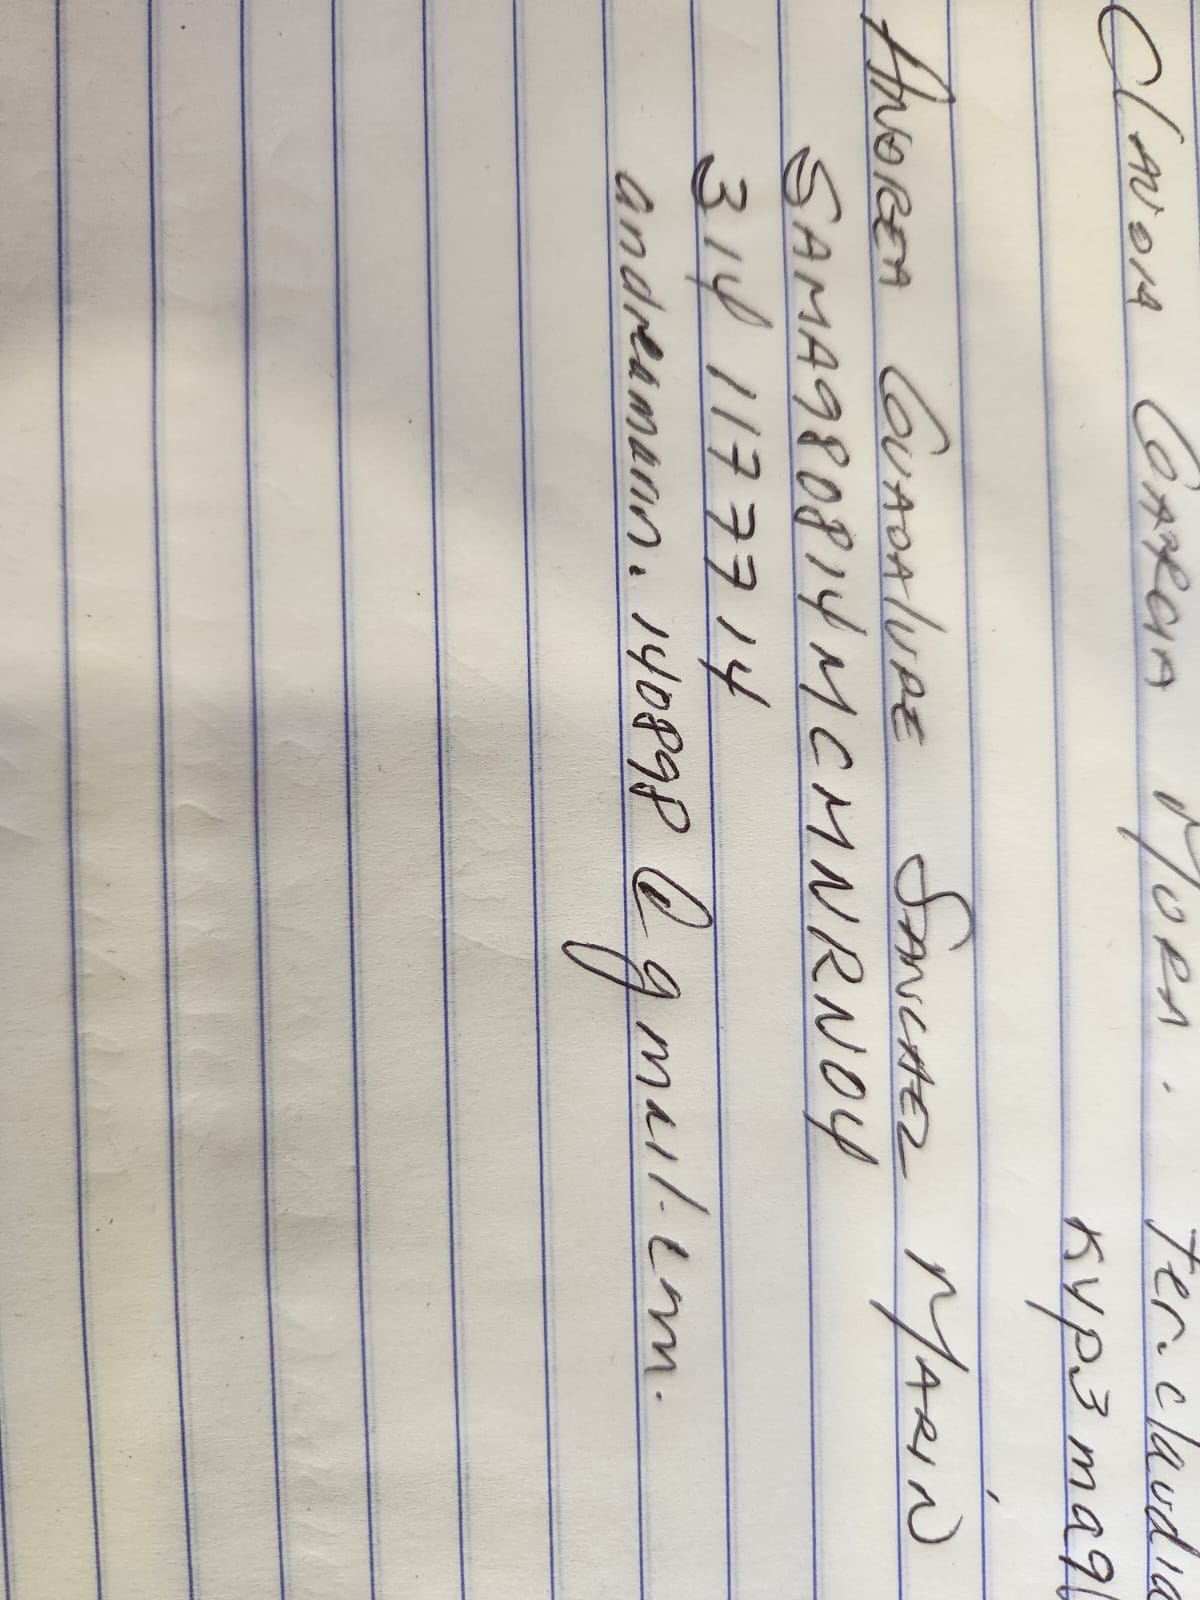 Claudia Garcia Mora. fer.claudia
kyp3ma9
Andrea Guadalupe Sanchez Marín
SAMA980814MCMNRN04
314 1177714
andreamarin.140898@gmail.com.